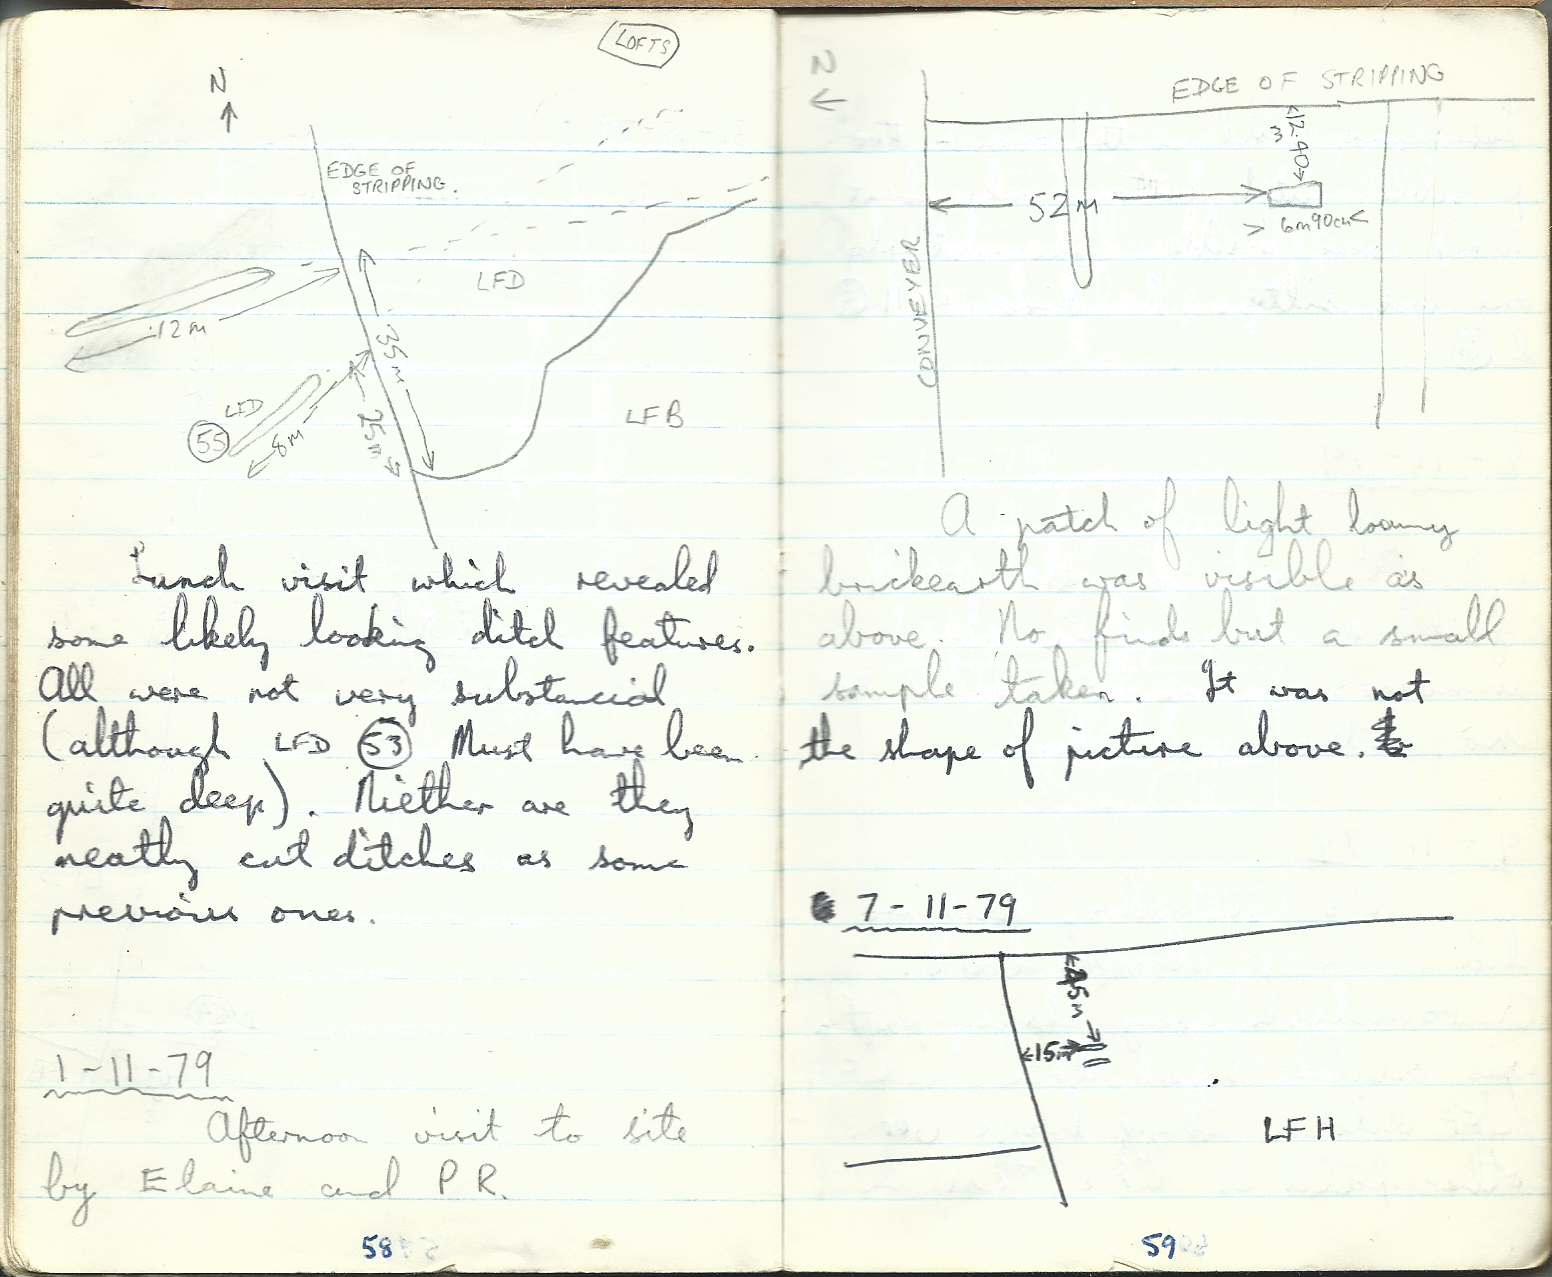 LOFTS
N
EDGE OF
STRIPPING.
LFD
12 m
35 m
LFD
55
8m
25m
LFB
Lunch visit which revealed
some likely looking ditch features.
All were not very substancial
(although LFD 53 Must have been
quite deep). Niether are they
neatly cut ditches as some
previous ones.
1-11-79
Afternoon visit to site
by Elaine and P R.
58
N
EDGE OF STRIPPING
12.40
m
52 M
6m90cm
CONVEYER
A patch of light loamy
brickearth was visible as
above. No finds but a small
sample taken. It was not
the shape of picture above.
7-11-79
45m
15m
LFH
59